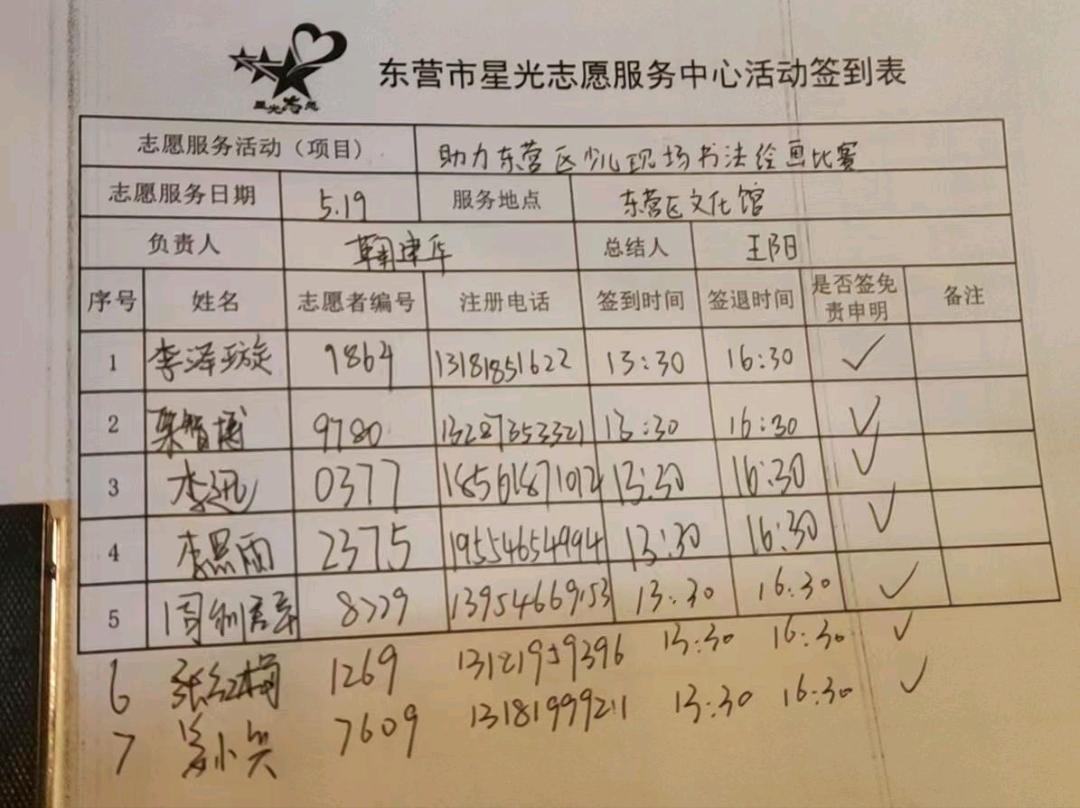 星光志愿
东营市星光志愿服务中心活动签到表
志愿服务活动（项目） 助力东营区少儿现场书法绘画比赛
志愿服务日期 5.19 服务地点 东营区文化馆
负责人 鞠建华 总结人 王阳
序号 姓名 志愿者编号 注册电话 签到时间 签退时间 是否签免责申明 备注
1 李泽璇 9864 13181851622 13:30 16:30 ✓
2 梁智博 9780 13287353321 13:30 16:30 ✓
3 李迅 0377 18561871072 13:30 16:30 ✓
4 李思雨 2375 19554654994 13:30 16:30 ✓
5 8779 13954669153 13:30 16:30 ✓
6 张红梅 1269 13121959396 13:30 16:30 ✓
7 7609 13181999211 13:30 16:30 ✓